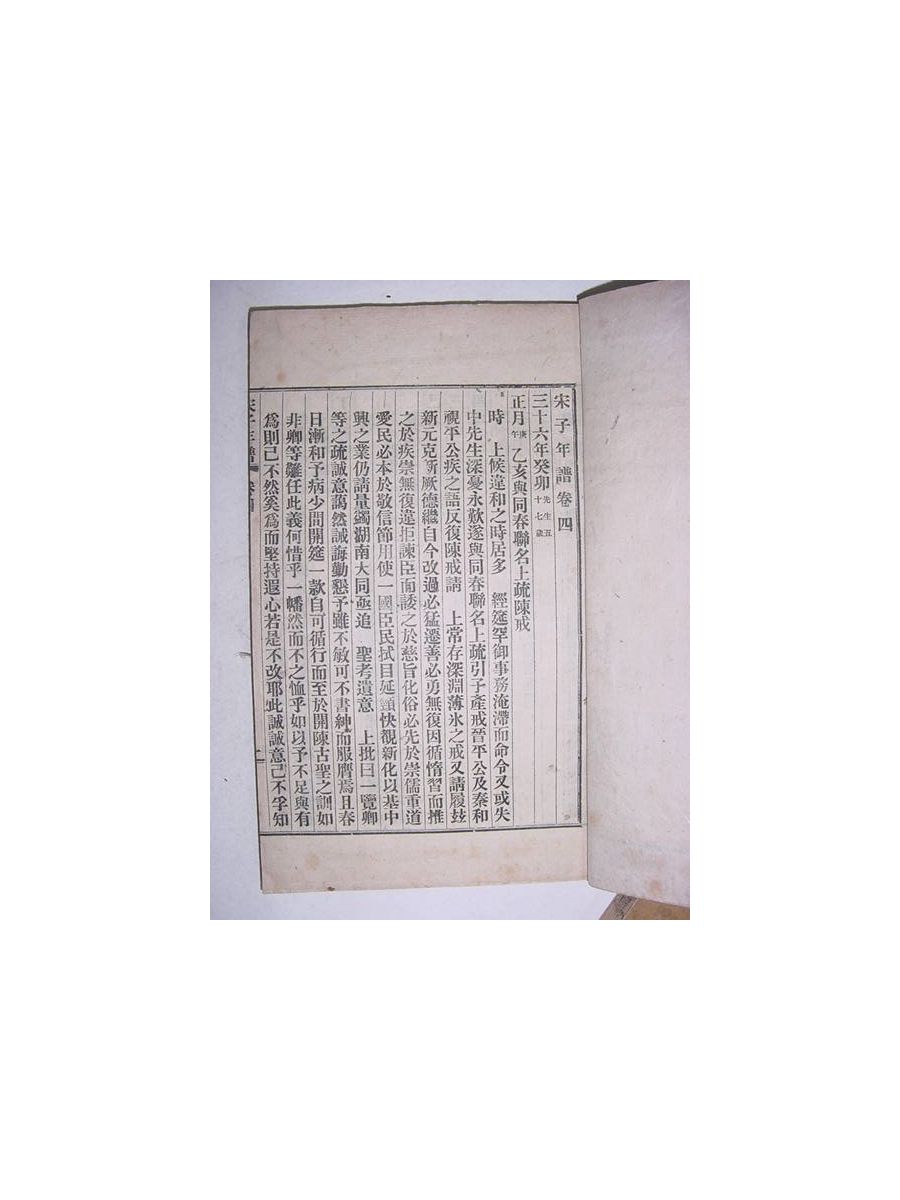 宋子年譜卷四
三十六年癸卯先生五十七歲
正月庚午乙亥與同春聯名上疏陳戒
時 上候違和之時居多 經筵罕御事務淹滯而命令又或失
中先生深憂永歎遂與同春聯名上疏引子產戒晉平公及秦和
視平公疾之語反復陳戒請 上常存深淵薄氷之戒又請履玆
新元克新厥德繼自今改過必猛遷善必勇無復因循惰習而推
之於疾祟無復違拒諫臣而諉之於慈旨化俗必先於崇儒重道
愛民必本於敬信節用使一國臣民拭目延頸快覩新化以基中
興之業仍請量蠲湖南大同亟追 聖考遺意 上批曰一覽卿
等之疏誠意藹然誡誨勤懇予雖不敏可不書紳而服膺焉且春
日漸和予病少間開筵一款自可循行而至於開陳古聖之訓如
非卿等難任此義何惜乎一幡然而不之恤乎如以予不足與有
爲則已不然奚爲而堅持遐心若是不改耶此誠誠意已不孚知
宋子年譜 卷四 一